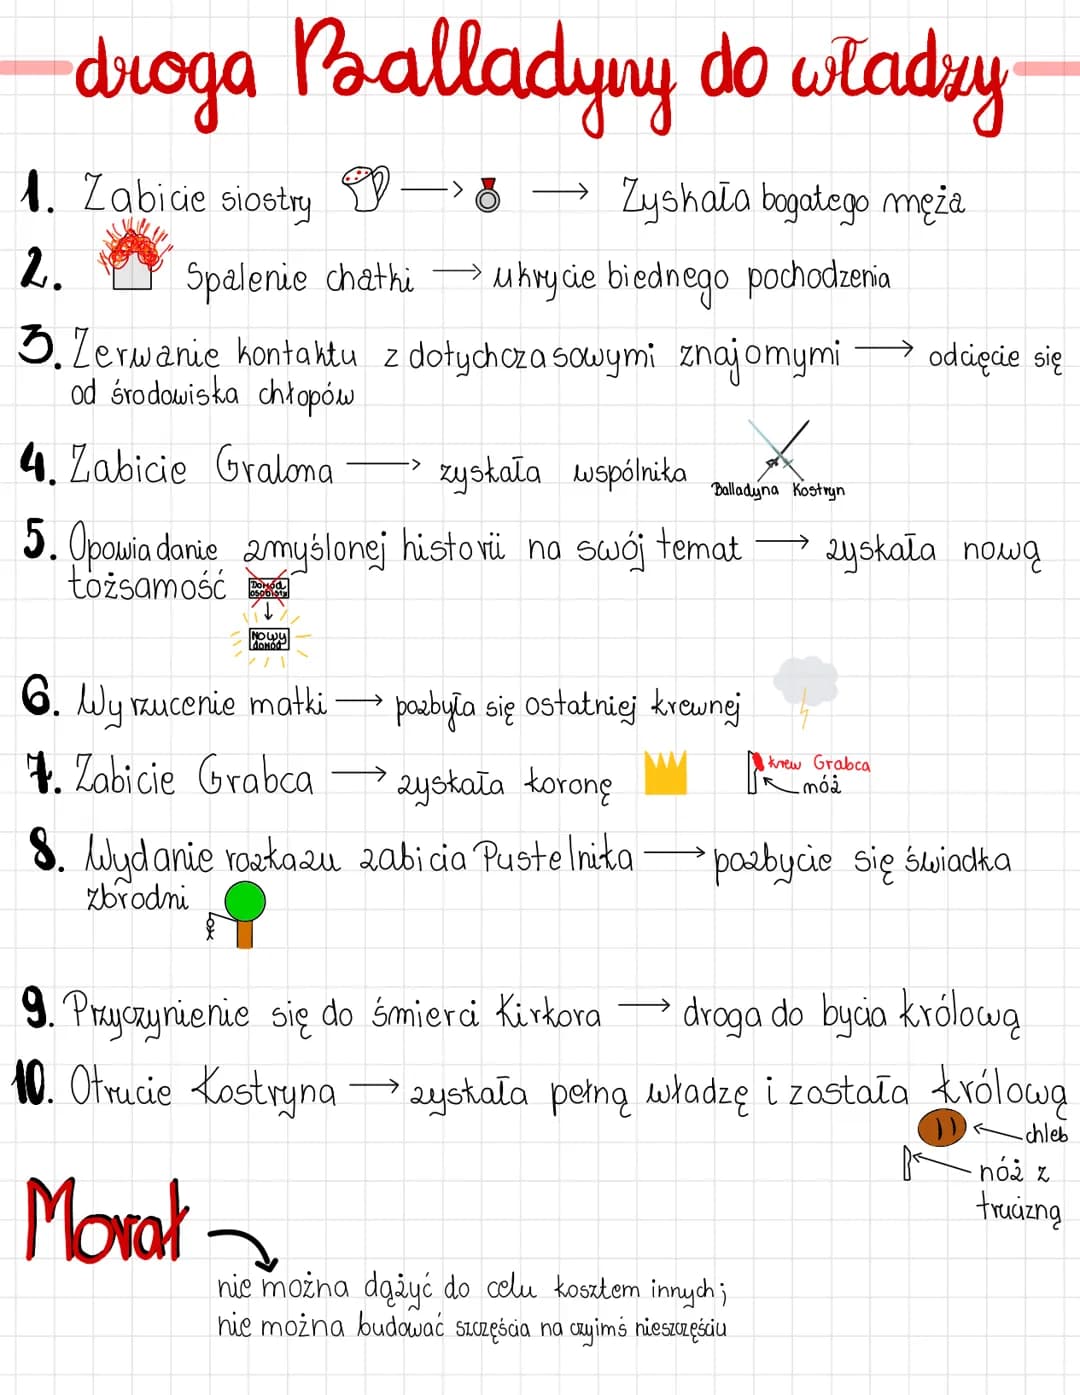 droga Balladyny do władzy
1. Zabicie siostry → → Zyskała bogatego męża
2. Spalenie chatki → ukrycie biednego pochodzenia
3. Zerwanie kontaktu z dotychczasowymi znajomymi → odcięcie się
od środowiska chłopów
4. Zabicie Gralona → zyskała wspólnika
Balladyna Kostryn
5. Opowiadanie zmyślonej historii na swój temat → zyskała nową
tożsamość
Dowód
osobisty
Nowy
dowód
6. Wyrzucenie matki → pozbyła się ostatniej krewnej
7. Zabicie Grabca → zyskała koronę
krew Grabca
nóż
8. Wydanie rozkazu zabicia Pustelnika → pozbycie się świadka
zbrodni
9. Przyczynienie się do śmierci Kirkora → droga do bycia królową
10. Otrucie Kostryna → zyskała pełną władzę i została królową
chleb
nóż z
trucizną
Morał
nie można dążyć do celu kosztem innych;
nie można budować szczęścia na czyimś nieszczęściu